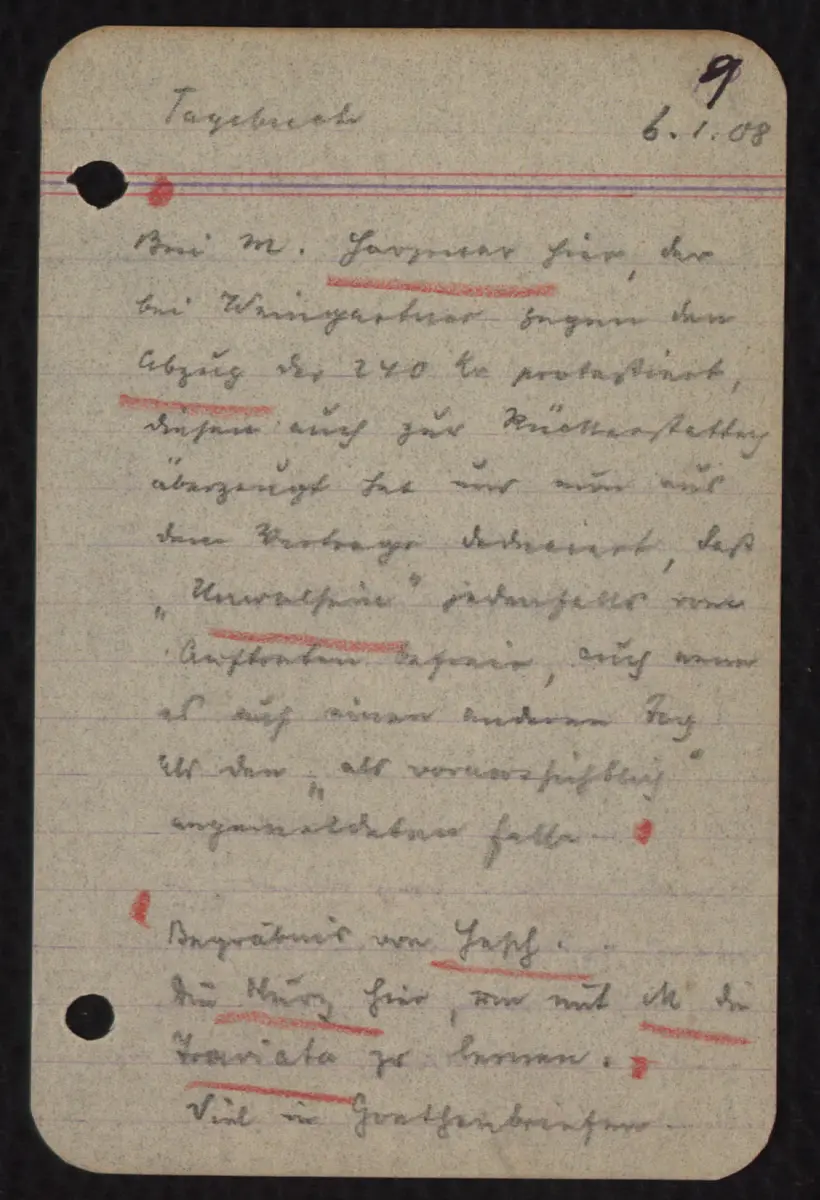 9
Tagebuch 6.1.08
Bei M. hier, der
bei Weingartner gegen den
Abzug der 240 Kr protestiert,
diesen auch zur Rückerstattung
überzeugt hat und nun aus
dem Vertrage deduciert, daß
„Unwolsein" jedenfalls vom
Auftreten befreie, auch wenn
es auf einen anderen Tag
als den „als voraussichtlich"
angemeldeten falle.
Begräbnis von Hesch.
Die Kurz hier, um mit M die
Traviata zu lernen.
Viel in Goethebriefen